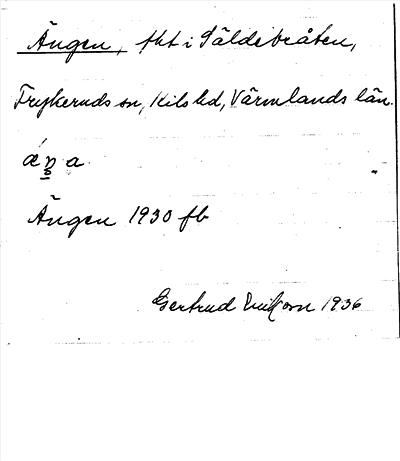 Ängen, tkt i Säldebråten,
Frykeruds sn, Kils hd, Värmlands län.
Ängen 1930 fb
Gertrud Ericsson 1936